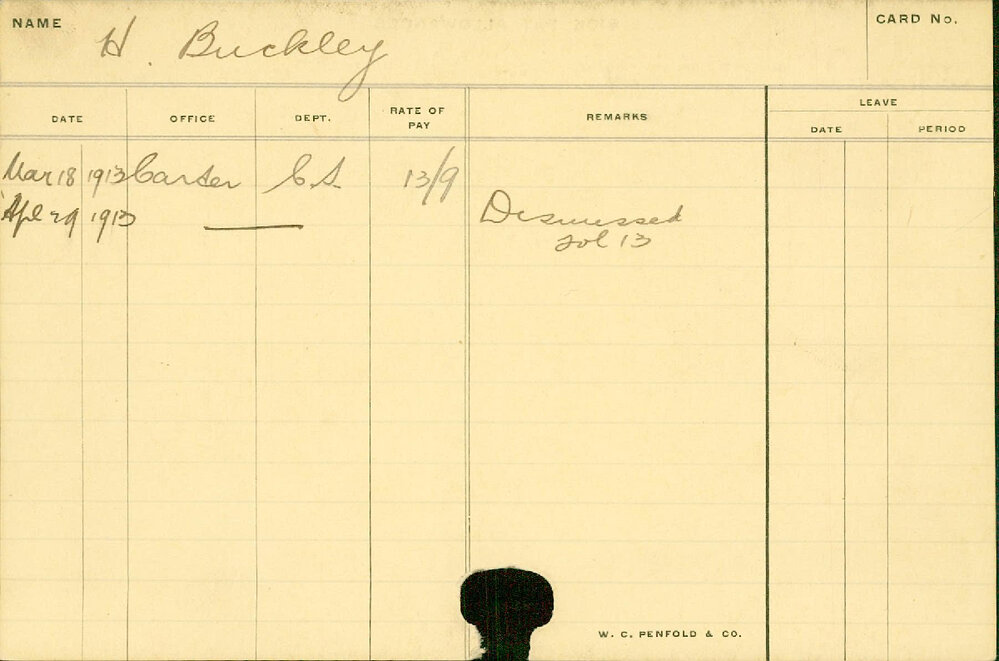 NAME H. Buckley CARD No.
DATE OFFICE DEPT. RATE OF PAY REMARKS LEAVE
DATE PERIOD
Mar 18 1913 Carter C.S. 13/9
Apl 29 1913 —— Dismissed
fol 13
W. C. PENFOLD & CO.